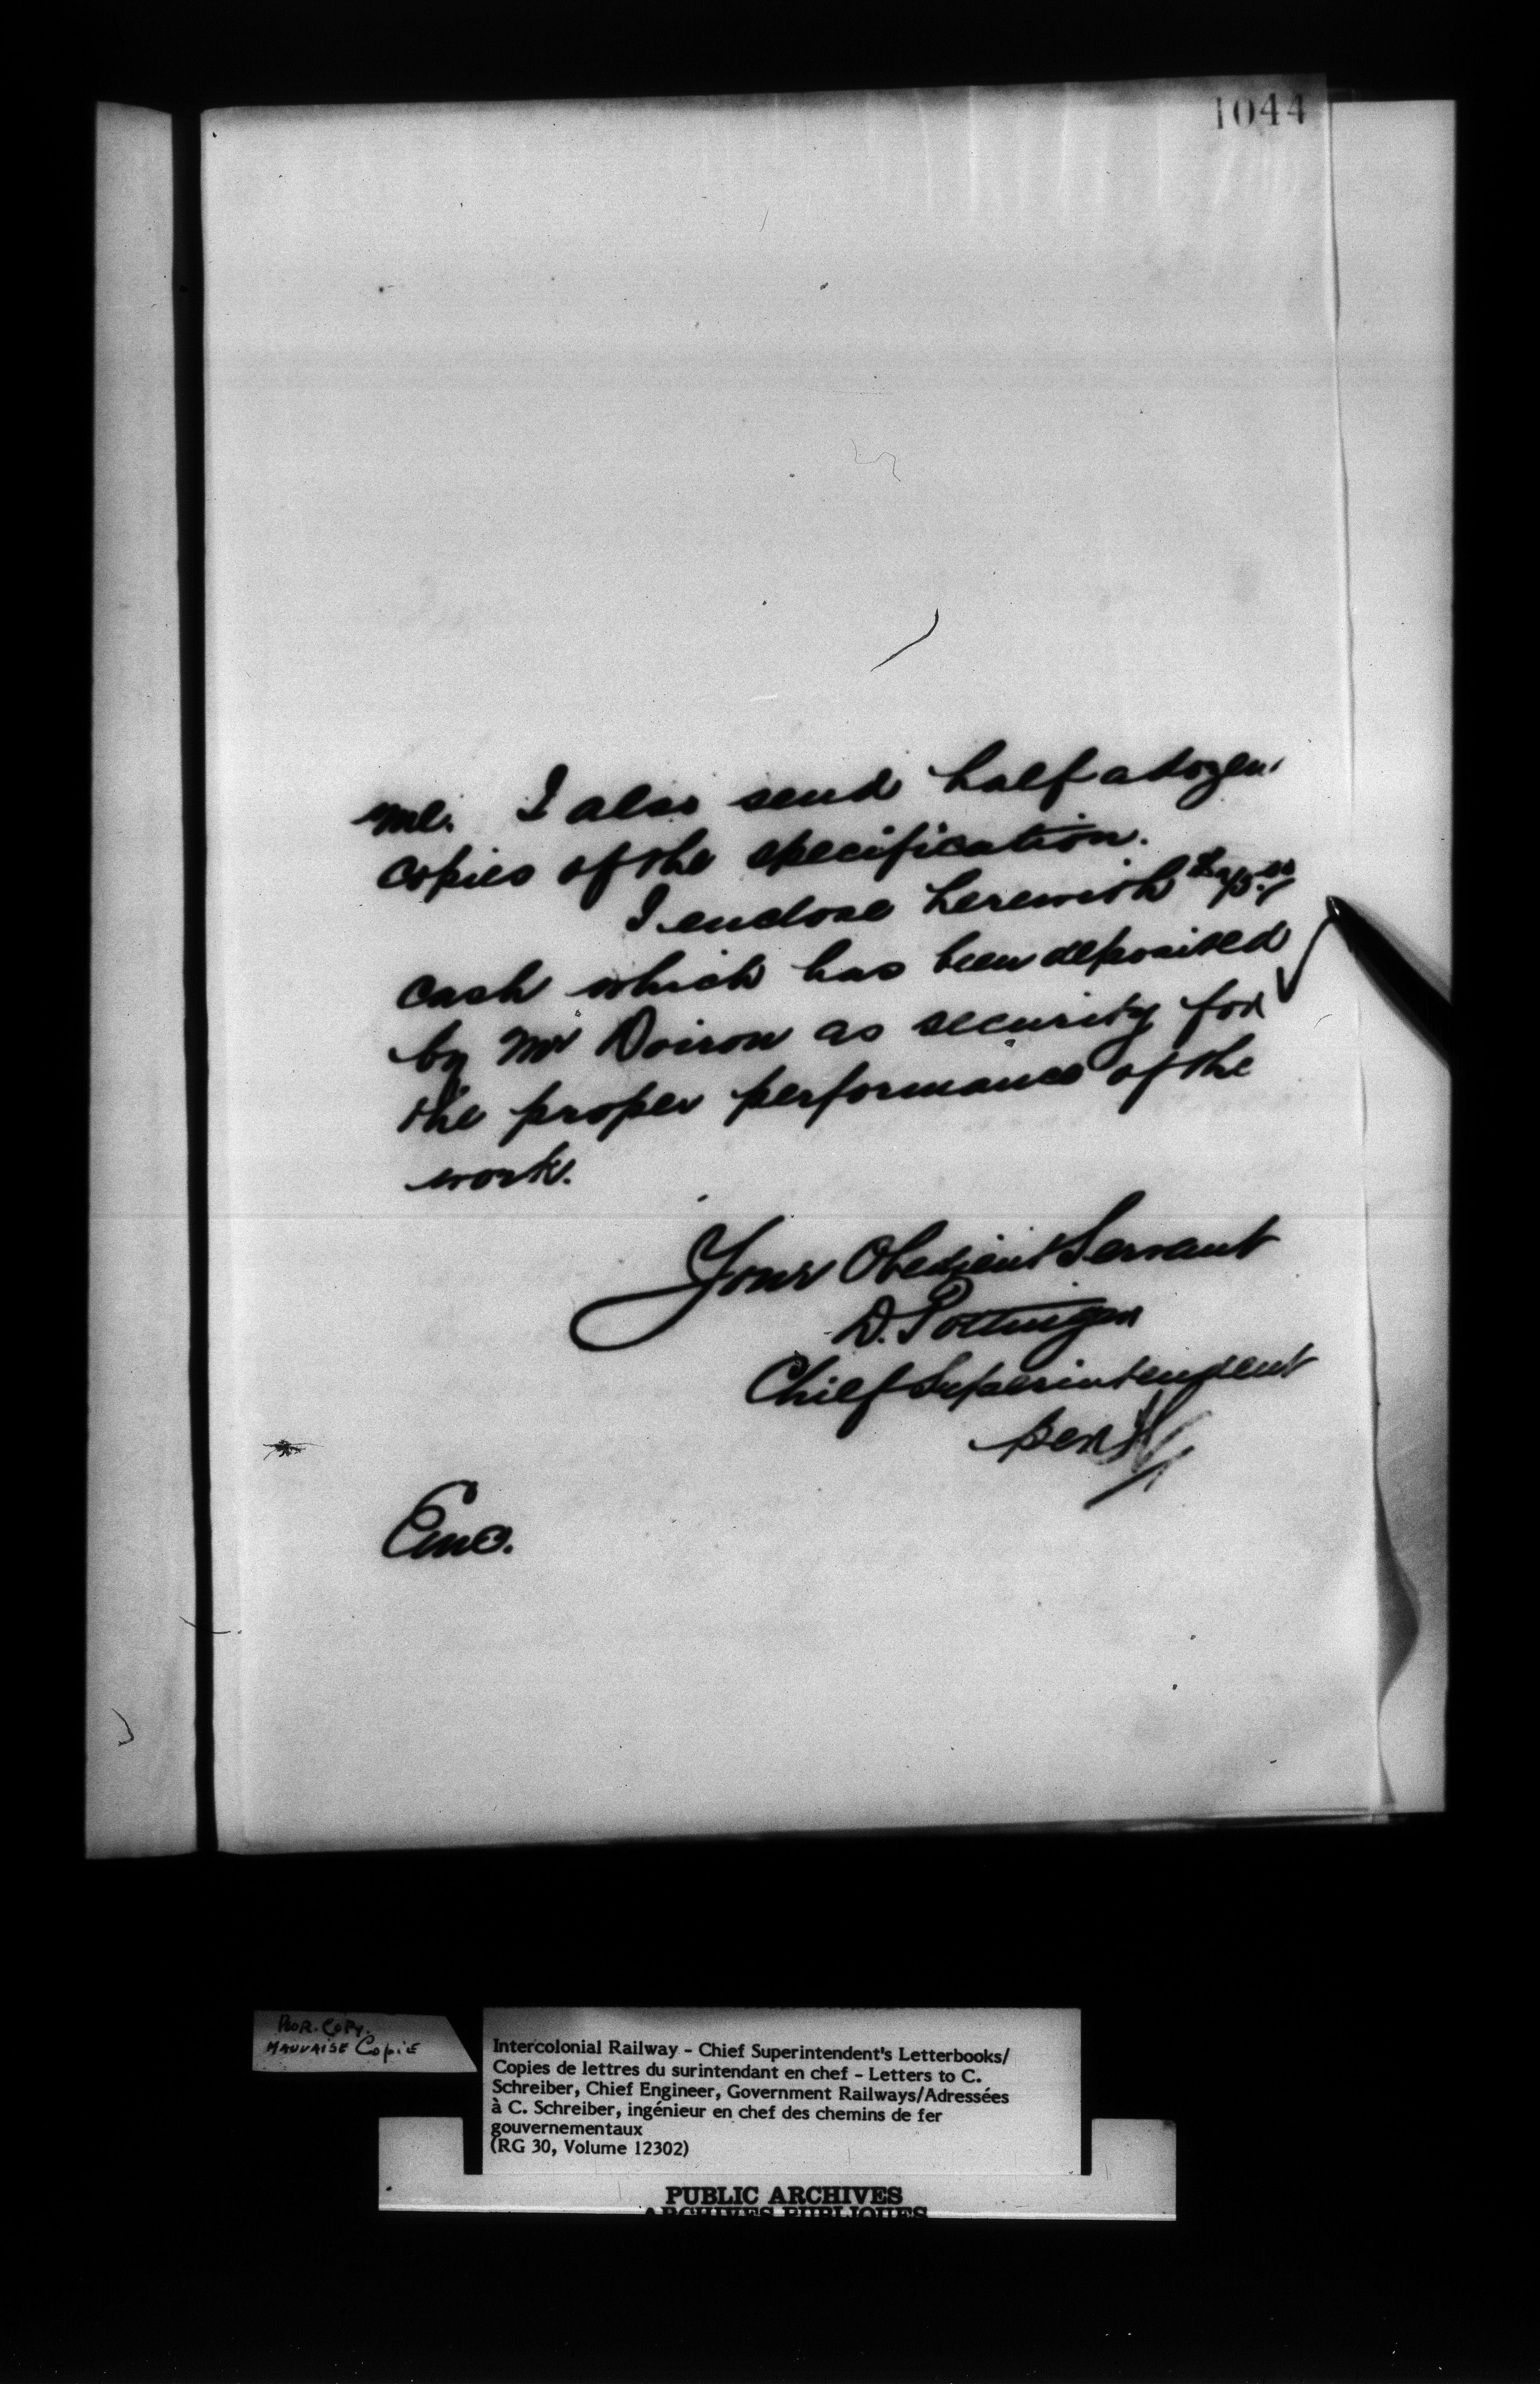 1044
me. I also send half a dozen
copies of the specification.
I enclose herewith
cash which has been deposited
by Mr Doiron as security for
the proper performance of the
work.
Your Obedient Servant
D. Pottinger
Chief Superintendent
per
Enc.
POOR. COPY.
MAUVAISE Copie
Intercolonial Railway - Chief Superintendent's Letterbooks/
Copies de lettres du surintendant en chef - Letters to C.
Schreiber, Chief Engineer, Government Railways/Adressées
à C. Schreiber, ingénieur en chef des chemins de fer
gouvernementaux
(RG 30, Volume 12302)
PUBLIC ARCHIVES
ARCHIVES PUBLIQUES